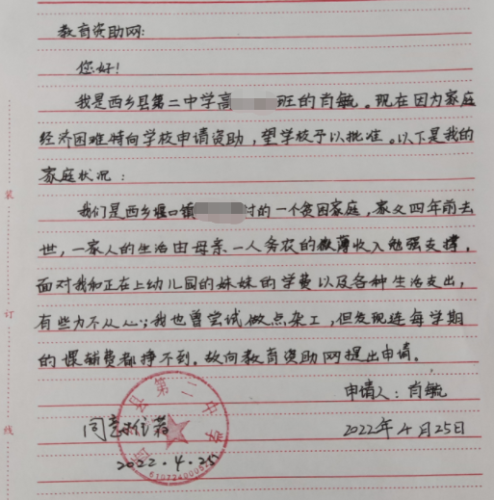 教育资助网:
您好!
我是西乡县第二中学高 班的肖毓。现在因为家庭
经济困难特向学校申请资助,望学校予以批准。以下是我的
家庭状况:
我们是西乡堰口镇 村的一个贫困家庭,家父四年前去
世,一家人的生活由母亲一人务农的微薄收入勉强支撑,
面对我和正在上幼儿园的妹妹的学费以及各种生活支出,
有些力不从心;我也曾尝试做点杂工,但发现连每学期
的课辅费都挣不到,故向教育资助网提出申请。
申请人:肖毓
同意推荐
2022年4月25日
2022.4.25
县第二中学
装
订
线